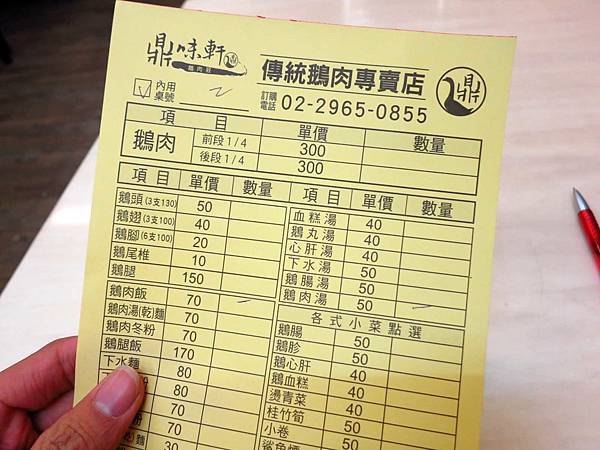 鼎味軒
鵝肉莊
傳統鵝肉專賣店
訂購電話 02-2965-0855
鼎
內用 桌號 2
項目 單價 數量
鵝肉 前段1/4 300
後段1/4 300
項目 單價 數量
鵝頭(3支130) 50
鵝翅(3支100) 40
鵝腳(6支100) 20
鵝尾椎 10
鵝腿 150
鵝肉飯 70
鵝肉湯(乾)麵 70
鵝肉冬粉 70
鵝腿飯 170
下水麵 80
80
70
70
麵 30
項目 單價 數量
血糕湯 40
鵝丸湯 40
心肝湯 40
下水湯 50
鵝腸湯 50
鵝肉湯 50
各式小菜點選
鵝腸 50
鵝胗 50
鵝心肝 40
鵝血糕 40
燙青菜 40
桂竹筍 40
小卷 50
鯊魚煙